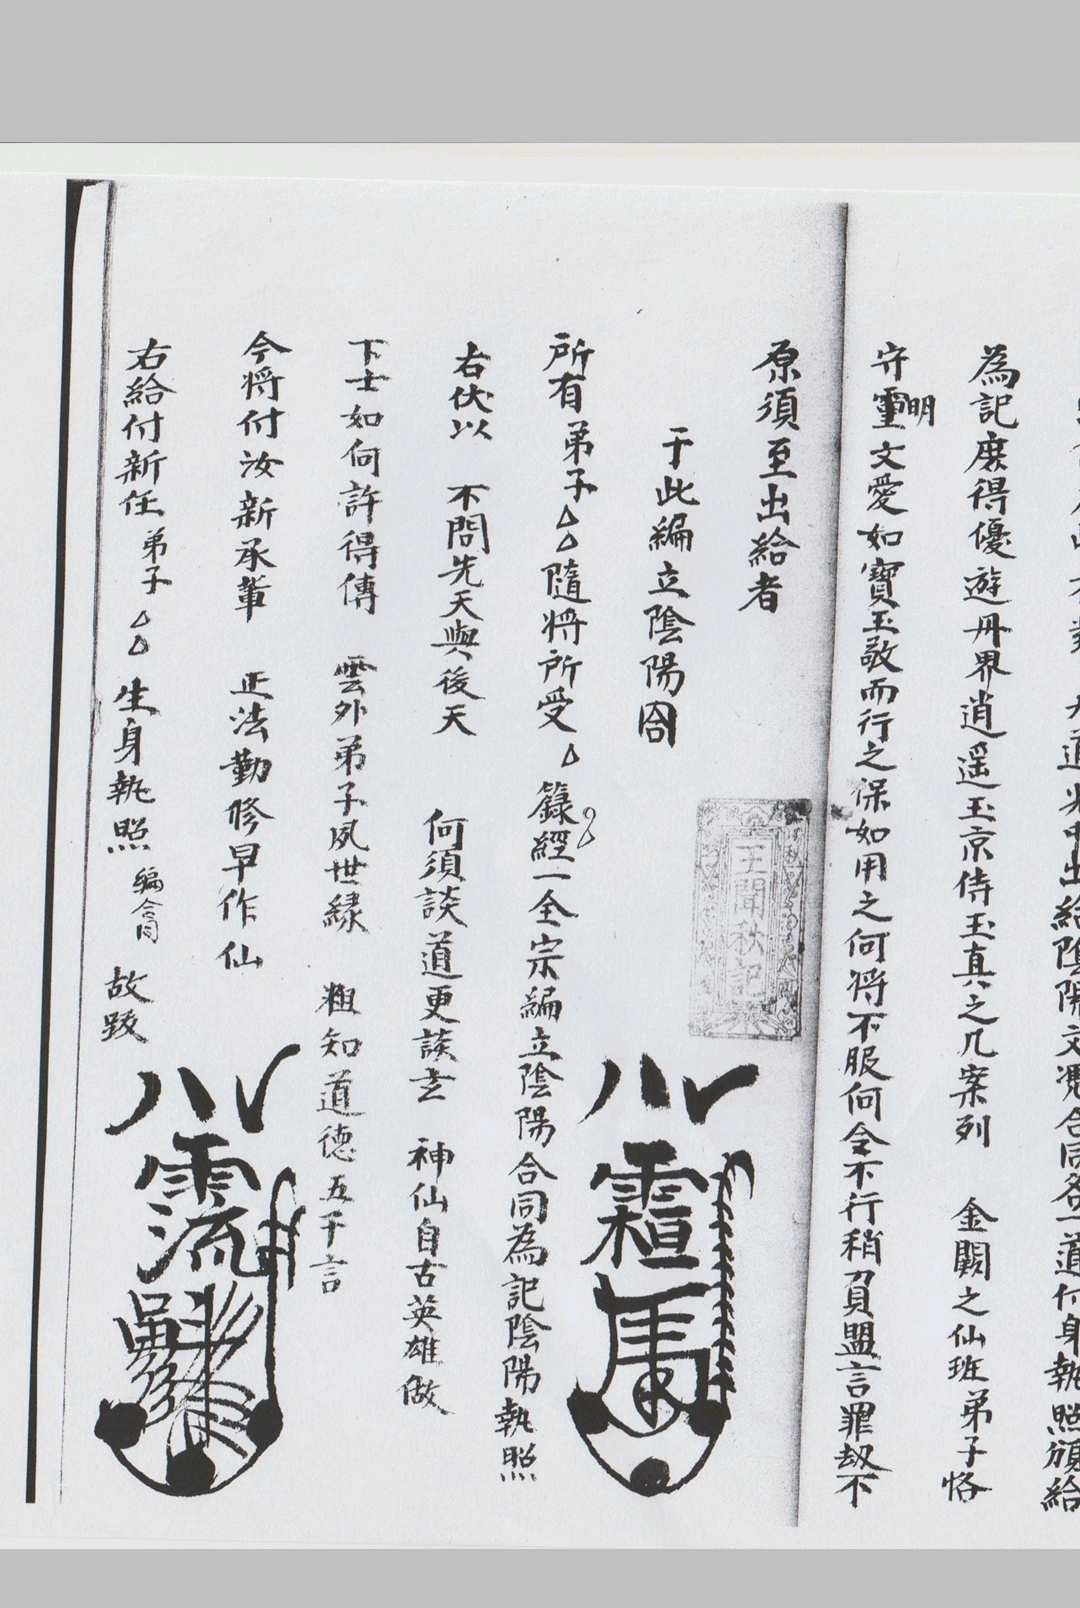 九道光中出給陰陽文憑合同各一道付身執照頒給
為記庶得優遊丹界逍遥玉京侍玉真之几案列 金闕之仙班弟子恪
守靈文愛如寶玉敬而行之保如用之何將不服何令不行稍負盟言罪劾不
明
原須至出給者
于此編立陰陽
所有弟子△△隨將所受△籙經一全宗編立陰陽合同為記陰陽執照
右伏以 不問先天與後天 何須談道更談玄 神仙自古英雄做
下士如何許得傳 雲外弟子夙世緣 粗知道德五千言
今將付汝新承輩 正法勤修早作仙
右給付新任弟子△△生身執照 編 故